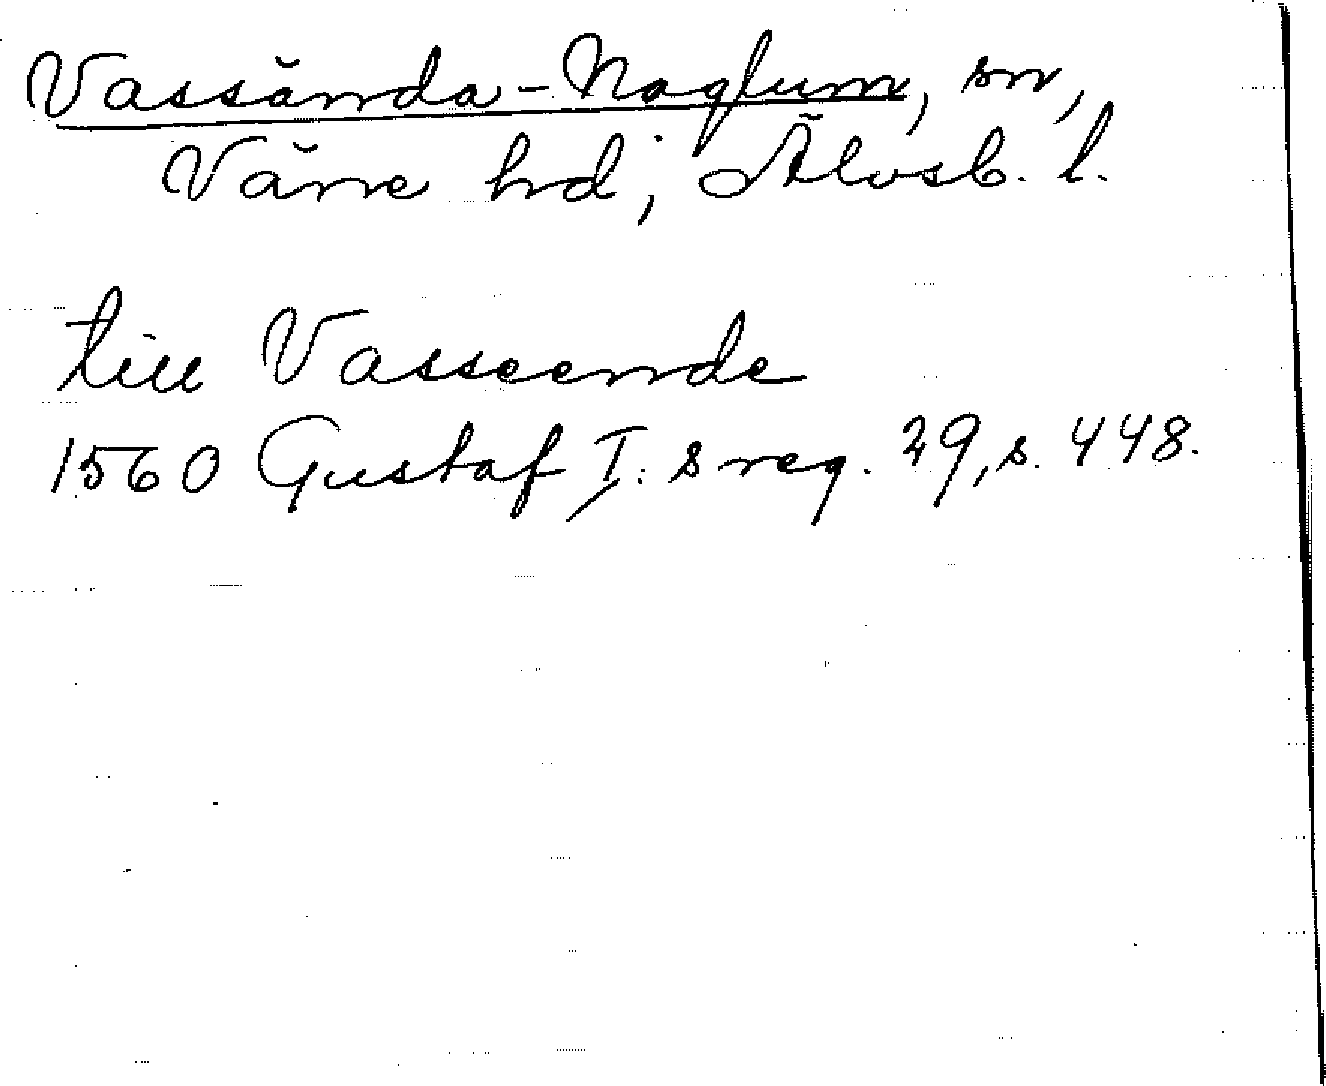 Vassända-Naglum, sn,
Väne hd, Älvsb. l.
till Vasseende
1560 Gustaf I:s reg. 29, s. 448.